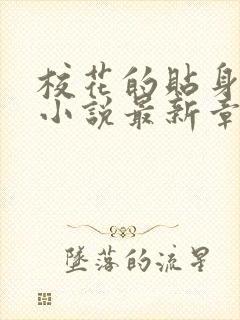 校花的貼身
小說最新章
墜落的流星